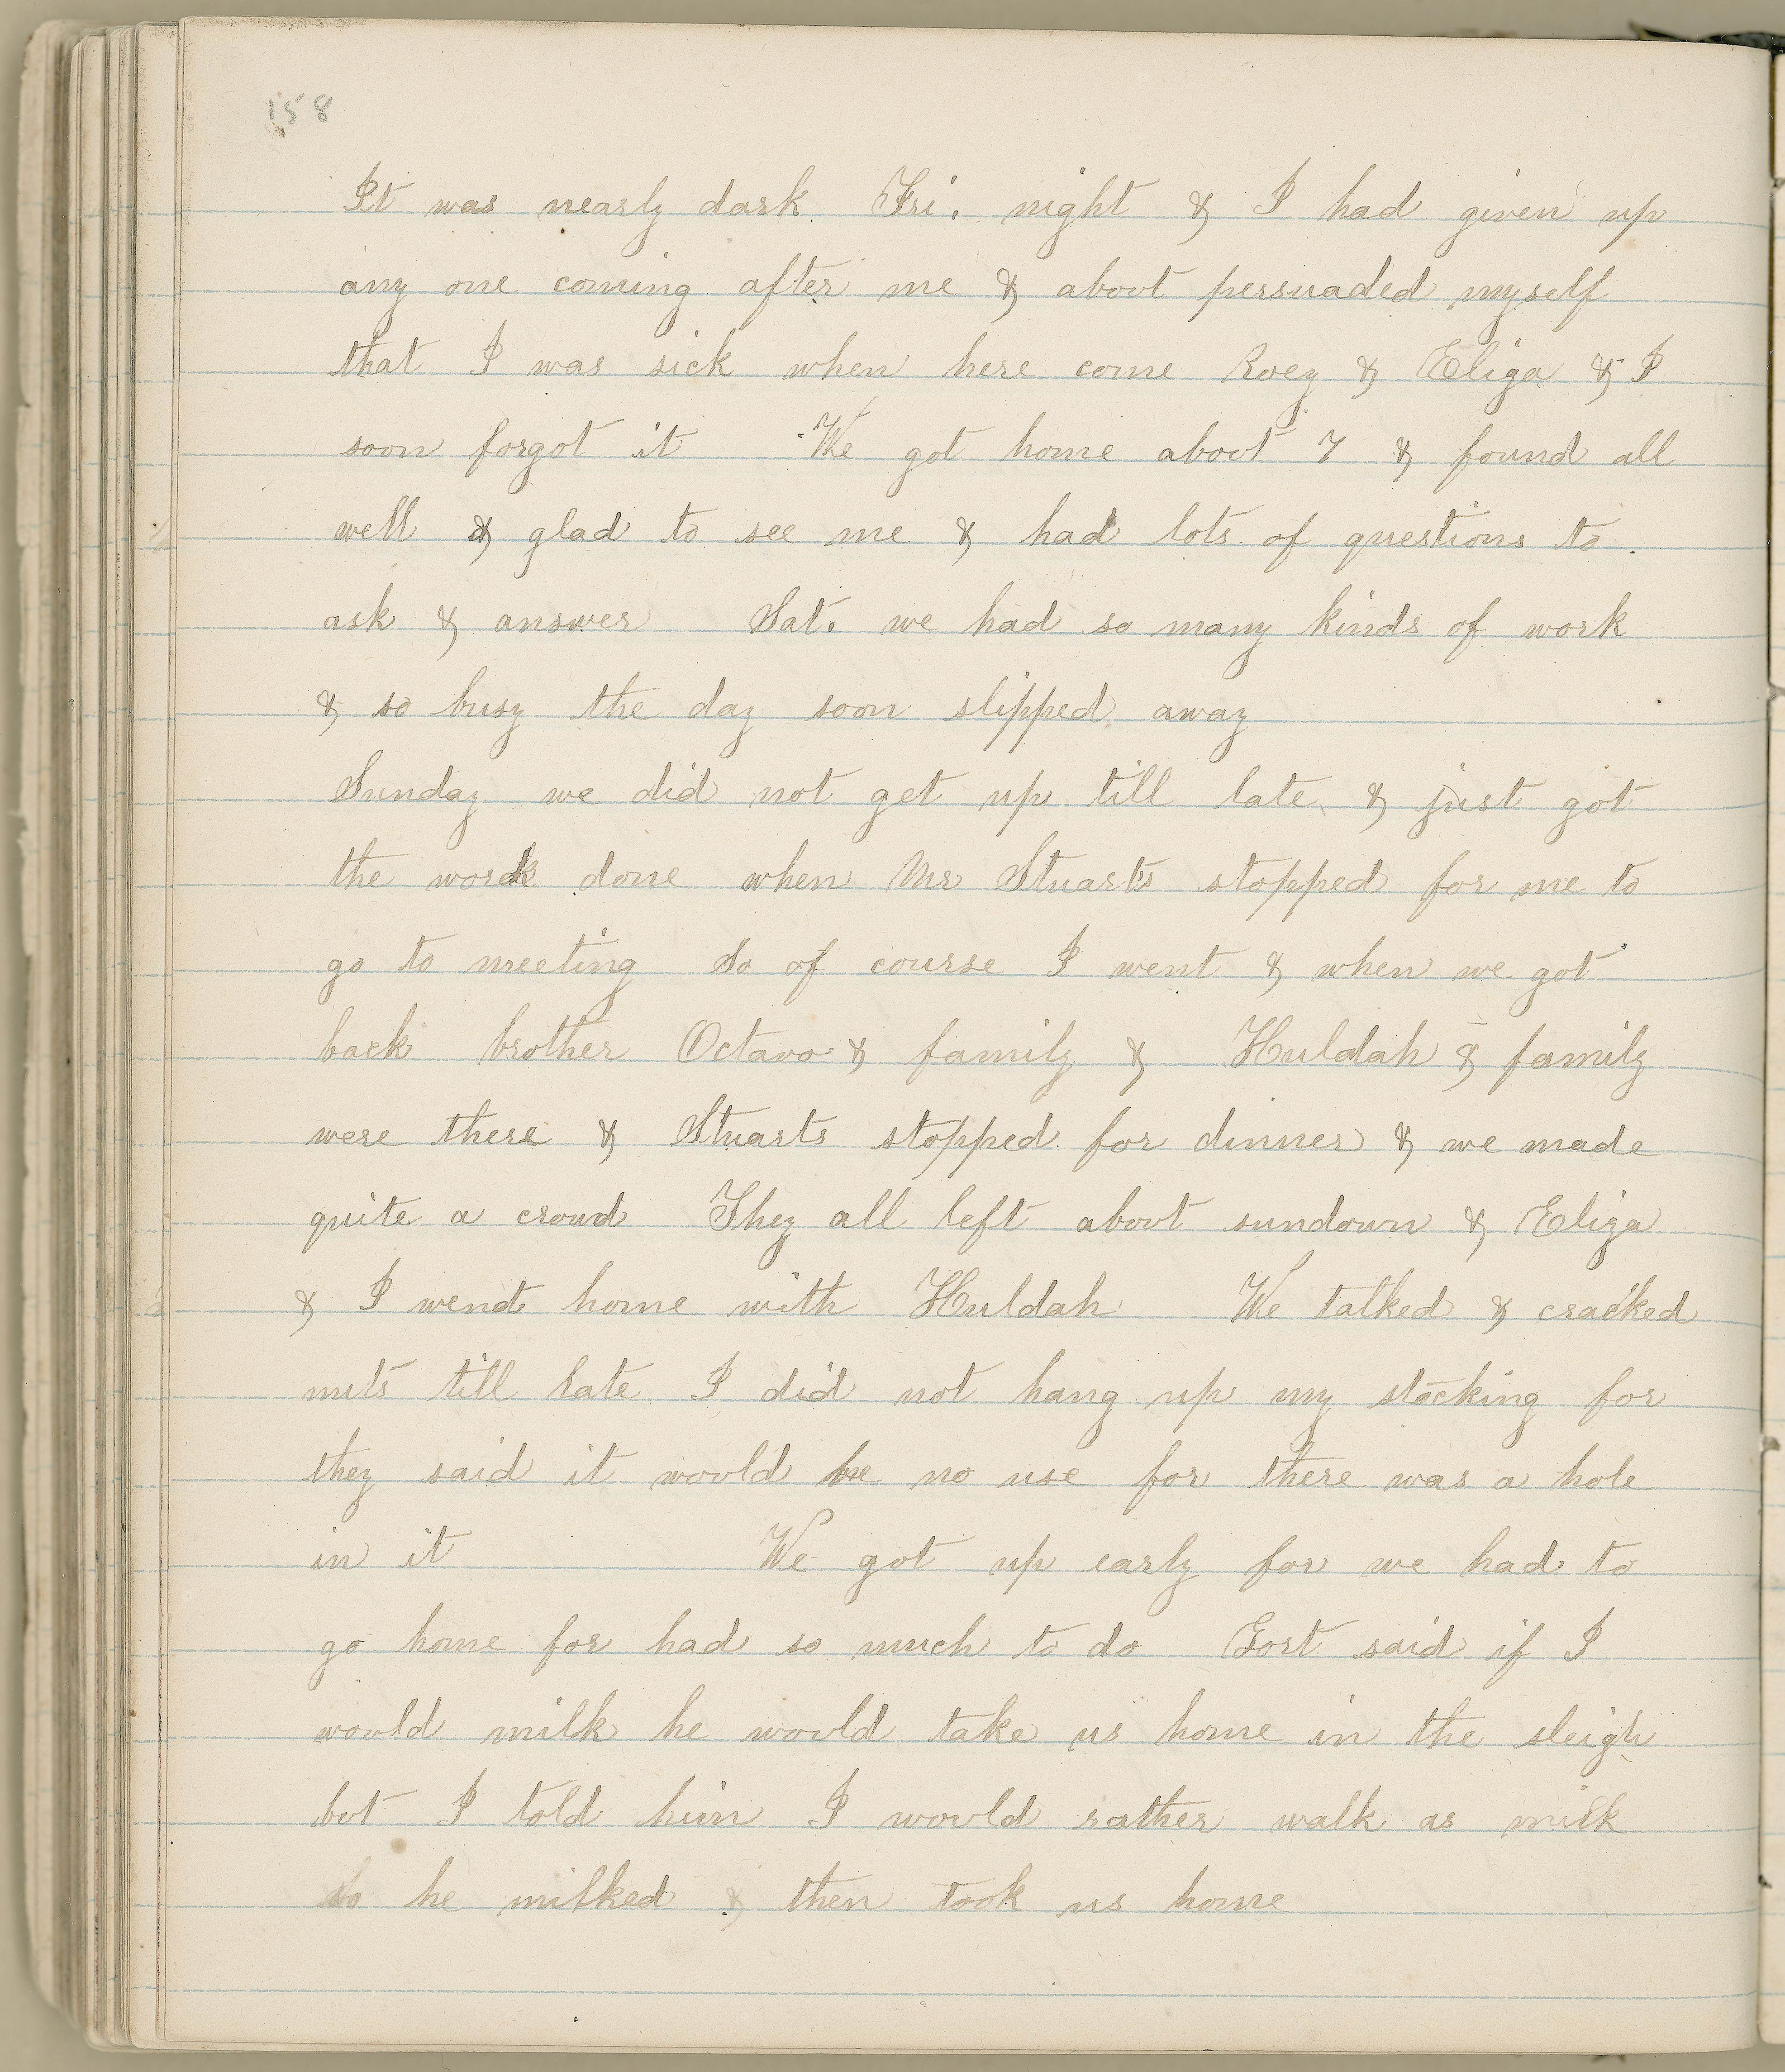 158
It was nearly dark Fri. night & I had given up
any one coming after me & about persuaded myself
that I was sick when here come Roey & Eliza & I
soon forgot it We got home about 7 & found all
well & glad to see me & had lots of questions to
ask & answer Sat. we had so many kinds of work
& so busy the day soon slipped away
Sunday we did not get up till late & just got
the work done when Mr Stuarts stopped for me to
go to meeting So of course I went & when we got
back brother Octavo & family & Huldah & family
were there & Stuarts stopped for dinner & we made
quite a croud They all left about sundown & Eliza
& I went home with Huldah We talked & cracked
nuts till late I did not hang up my stocking for
they said it would be no use for there was a hole
in it We got up early for we had to
go home for had so much to do Gort said if I
would milk he would take us home in the sleigh
but I told him I would rather walk as milk
So he milked & then took us home